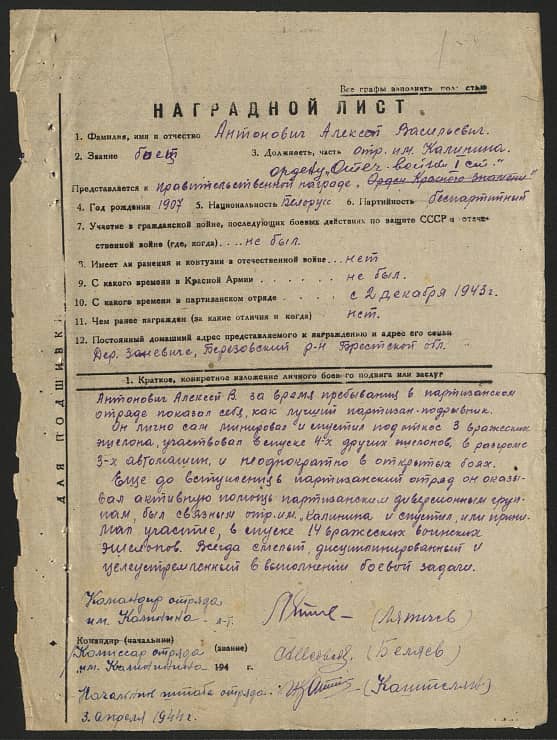 Все графы заполнять полностью
НАГРАДНОЙ ЛИСТ
1. Фамилия, имя и отчество Антонович Алексей Васильевич.
2. Звание боец 3. Должность, часть отр. им. Калинина.
ордену „Отеч. войны I ст."
Представляется к правительственной награде „Орден Красного знамени"
4. Год рождения 1907 5. Национальность Белорус 6. Партийность беспартийный
7. Участие в гражданской войне, последующих боевых действиях по защите СССР и отече-
ственной войне (где, когда) . . . не был.
8. Имеет ли ранения и контузии в отечественной войне . . . нет
9. С какого времени в Красной Армии . . . . . не был.
10. С какого времени в партизанском отряде . . . . с 2 декабря 1943 г.
11. Чем ранее награжден (за какие отличия и когда) нет.
12. Постоянный домашний адрес представляемого к награждению и адрес его семьи
Дер. Заневиче, Березовский р-н Брестской обл.
1. Краткое, конкретное изложение личного боевого подвига или заслуг
Антонович Алексей В. за время пребывания в партизанском
отряде показал себя, как лучший партизан-подрывник.
Он лично сам минировал и спустил под откос 3 вражеских
эшелона, участвовал в спуске 4-х других эшелонов, в разгроме
3-х автомашин, и неоднократно в открытых боях.
Еще до вступления в партизанский отряд он оказы-
вал активную помощь партизанским диверсионным груп-
пам, был связным отр. им. Калинина и спустил, или прини-
мал участие, в спуске 14 вражеских воинских
эшелонов. Всегда смелый, дисциплинированный и
целеустремленный в выполнении боевой задачи.
Командир отряда
им. Калинина
Командир (начальник)
(звание)
Комиссар отряда (Беляев)
им. Калинина 194 г.
Начальник штаба отряда
3. апреля 1944 г.
ДЛЯ ПОДШИВКИ